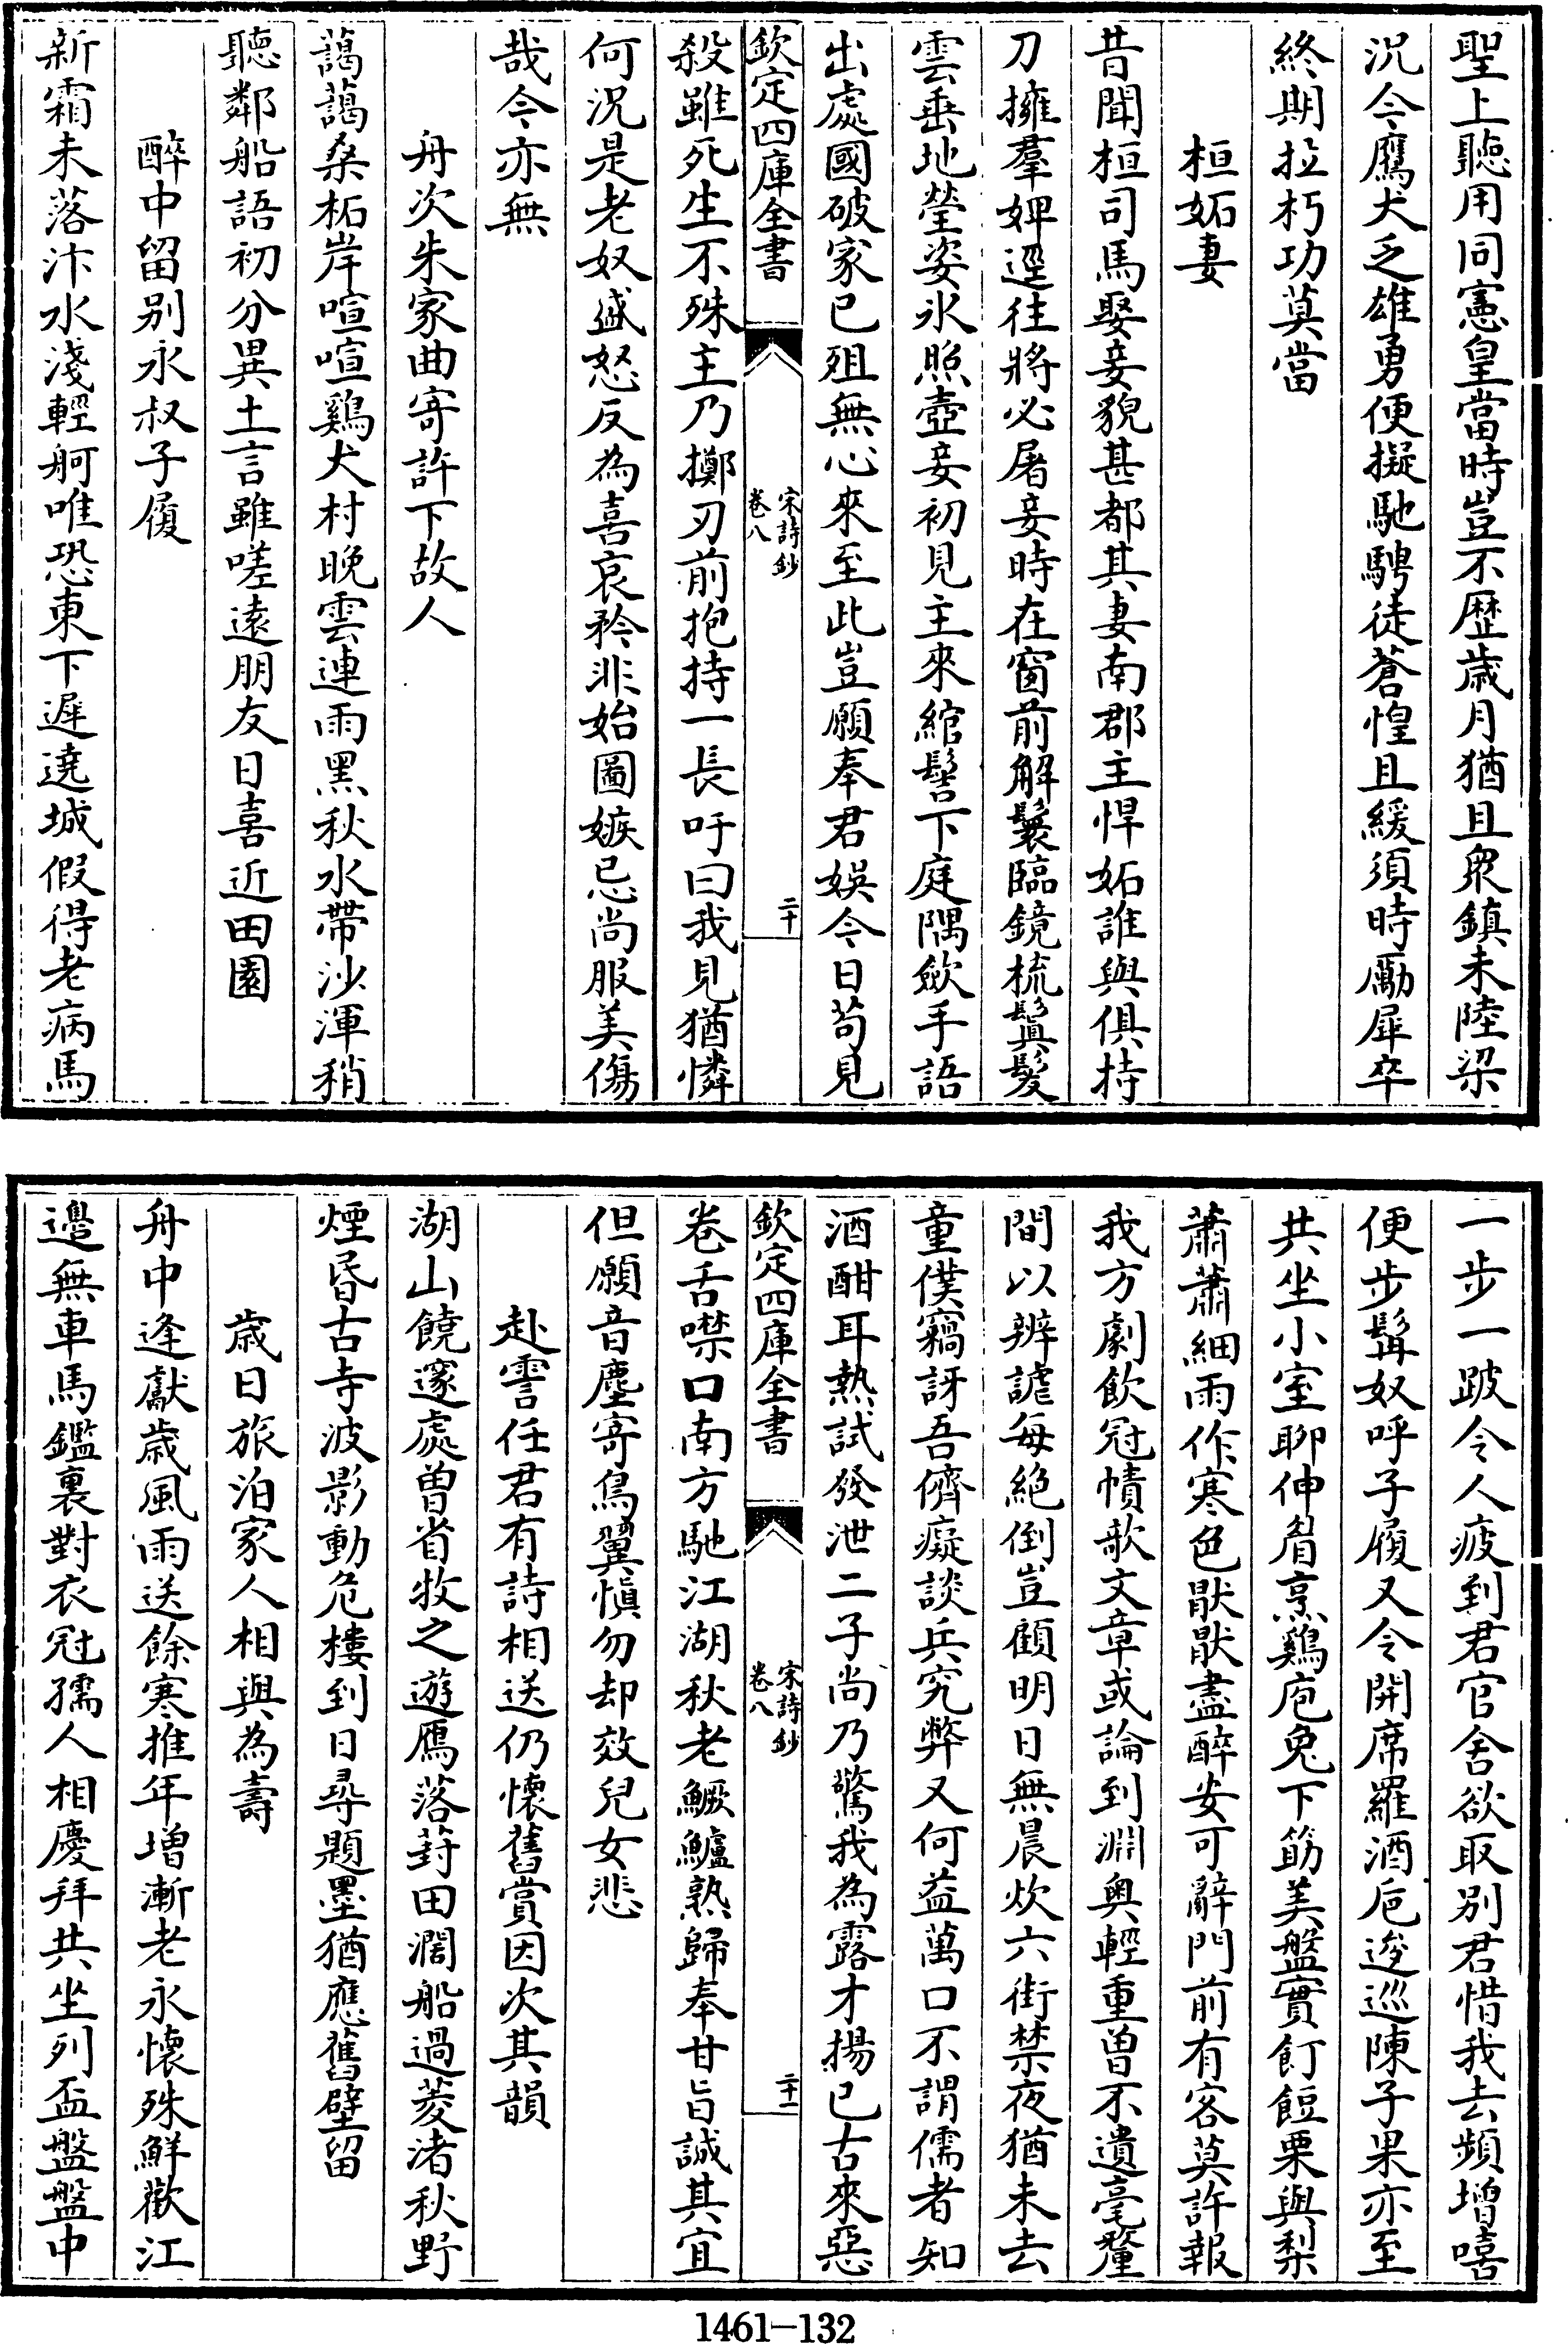 聖上聽用同憲皇當時豈不歴歲月猶且衆鎮未陸梁
況今鷹犬乏雄勇便擬馳騁徒蒼惶且緩須時勵犀卒
終期拉朽功莫當
桓妬妻
昔聞桓司馬娶妾貌甚都其妻南郡主悍妬誰與俱持
刀擁羣婢逕往將必屠妾時在窗前解鬟臨鏡梳鬒髪
雲垂地瑩姿氷照壺妾初見主來綰髻下庭隅歛手語
出處國破家已殂無心來至此豈願奉君娛今日茍見
欽定四庫全書
宋詩鈔
卷八
二十
殺雖死生不殊主乃擲刃前抱持一長吁曰我見猶憐
何況是老奴盛怒反為喜哀矜非始圖嫉忌尚服美傷
哉今亦無
舟次朱家曲寄許下故人
藹藹桑柘岸喧喧鷄犬村晚雲連雨黑秋水帶沙渾稍
聽鄰船語初分異土言雖嗟逺朋友日喜近田園
醉中留别永叔子履
新霜未落汴水淺輕舸唯恐東下遲遶城假得老病馬
一步一跛令人疲到君官舍欲取别君惜我去頻増嘻
便步髯奴呼子履又令開席羅酒巵逡巡陳子果亦至
共坐小室聊伸眉烹鷄庖兔下筯美盤實飣餖栗與梨
蕭蕭細雨作寒色厭厭盡醉安可辭門前有客莫許報
我方劇飲冠幘欹文章或論到淵奥輕重曽不遺毫釐
間以辨謔每絶倒豈顧明日無晨炊六街禁夜猶未去
童僕竊訝吾儕癡談兵究弊又何益萬口不謂儒者知
酒酣耳熱試發泄二子尚乃驚我為露才揚已古來惡
欽定四庫全書
宋詩鈔
卷八
二十一
卷舌噤口南方馳江湖秋老鱖鱸熟歸奉甘旨誠其宜
但願音塵寄鳥翼慎勿却效兒女悲
赴霅任君有詩相送仍懷舊賞因次其韻
湖山饒邃處曽省牧之遊鴈落葑田濶船過菱渚秋野
煙昏古寺波影動危樓到日尋題墨猶應舊壁留
歳日旅泊家人相與為壽
舟中逢獻歳風雨送餘寒推年増漸老永懷殊鮮歡江
邉無車馬鑑裏對衣冠孺人相慶拜共坐列盃盤盤中
1461-132